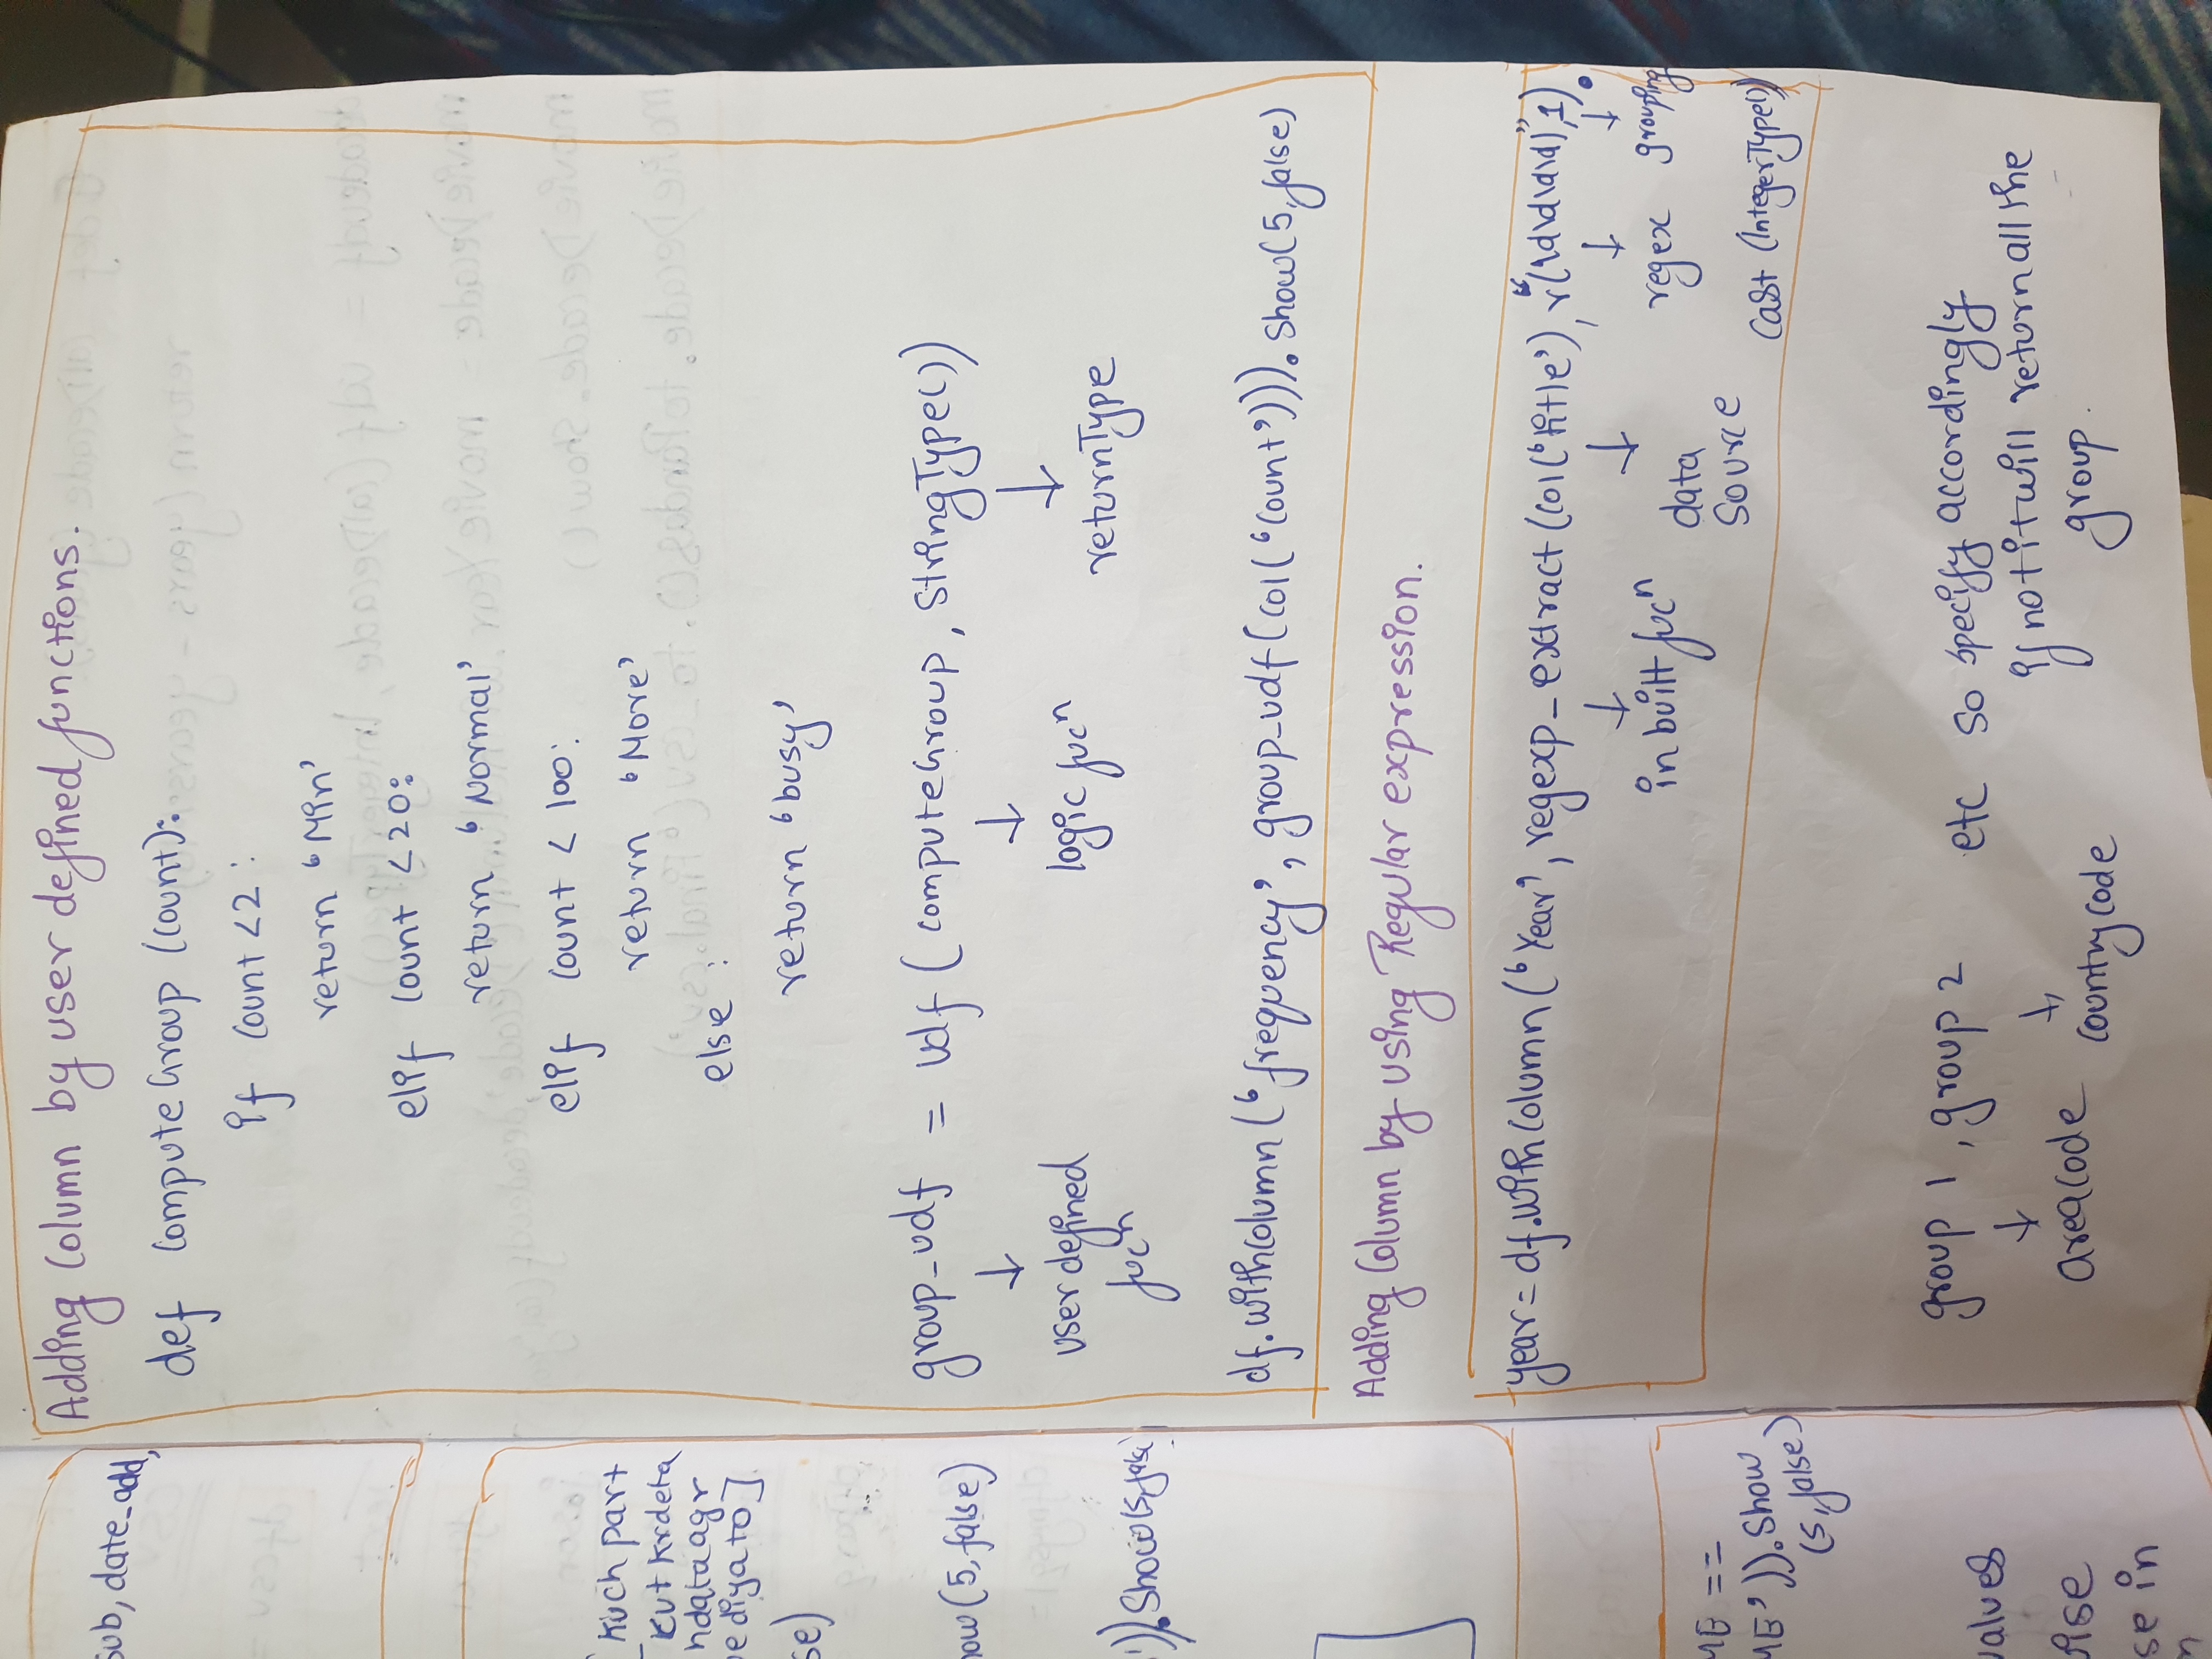 sub, date_add,
Kuch part
cut krdeta
agr
diya to]
se)
(5, false)
)).Show(5, false)
ME ==
ME')).Show
(5, false)
values
se in
Adding Column by user defined functions.
def computeGroup (count):
if count <2 :
return 'Min'
elif count <20:
return 'Normal'
elif count < 100:
return 'More'
else :
return 'busy'
group_udf = udf ( computeGroup, StringType())
↓ ↓ ↓
user defined logic fucⁿ returnType
fucⁿ
df.withcolumn ('frequency', group_udf (col('count'))). Show(5, false)
Adding Column by using Regular expression.
year = df.withColumn ('Year', regexp_extract (col('title'), r"(\d\d\d\d)",1).
↓ ↓ ↓ ↓
in built fucⁿ data regex grouping
source
cast (IntegerType())
group 1, group 2 etc so specify accordingly
↓ ↓ if not it will return all the
areacode countrycode group.